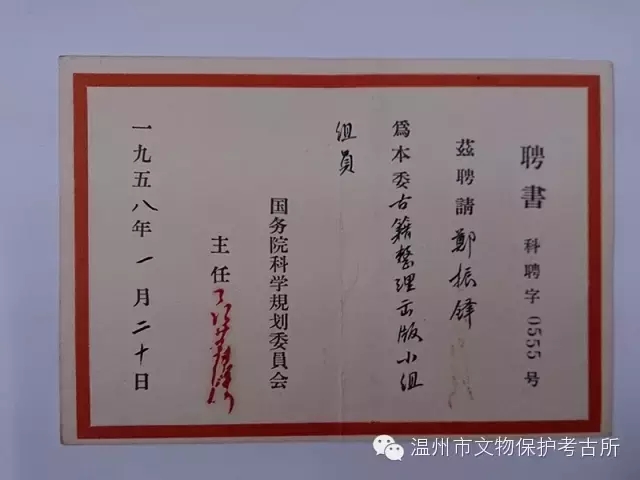 聘書 科聘字 0555 号
茲聘請鄭振铎
爲本委古籍整理出版小组
组員
国务院科学規划委員会
主任
一九五八年一月二十日
温州市文物保护考古所